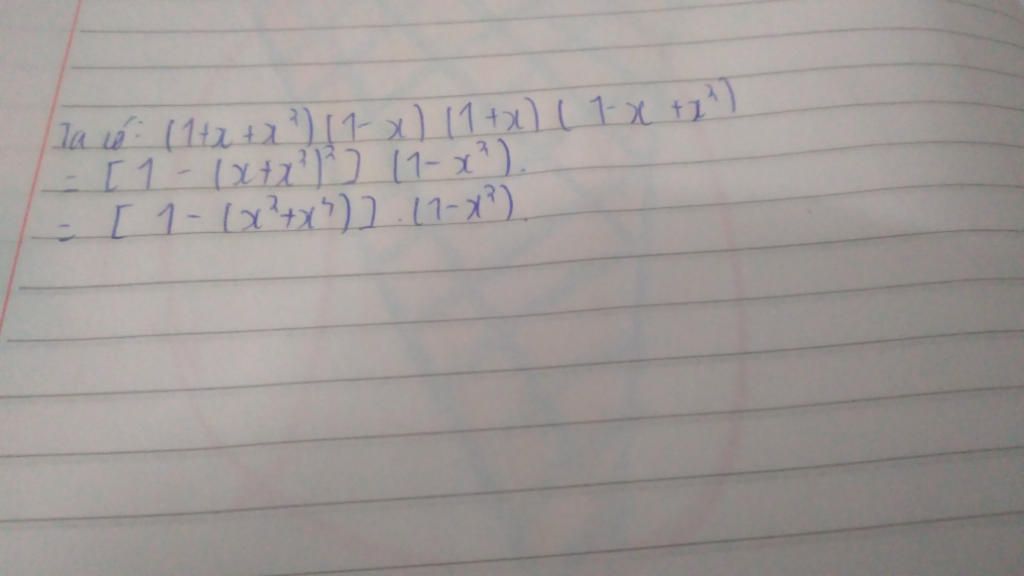 Ta có: (1+x+x²)(1-x)(1+x)(1-x+x²)
= [1-(x+x²)²](1-x²).
= [1-(x²+x⁴)].(1-x²).